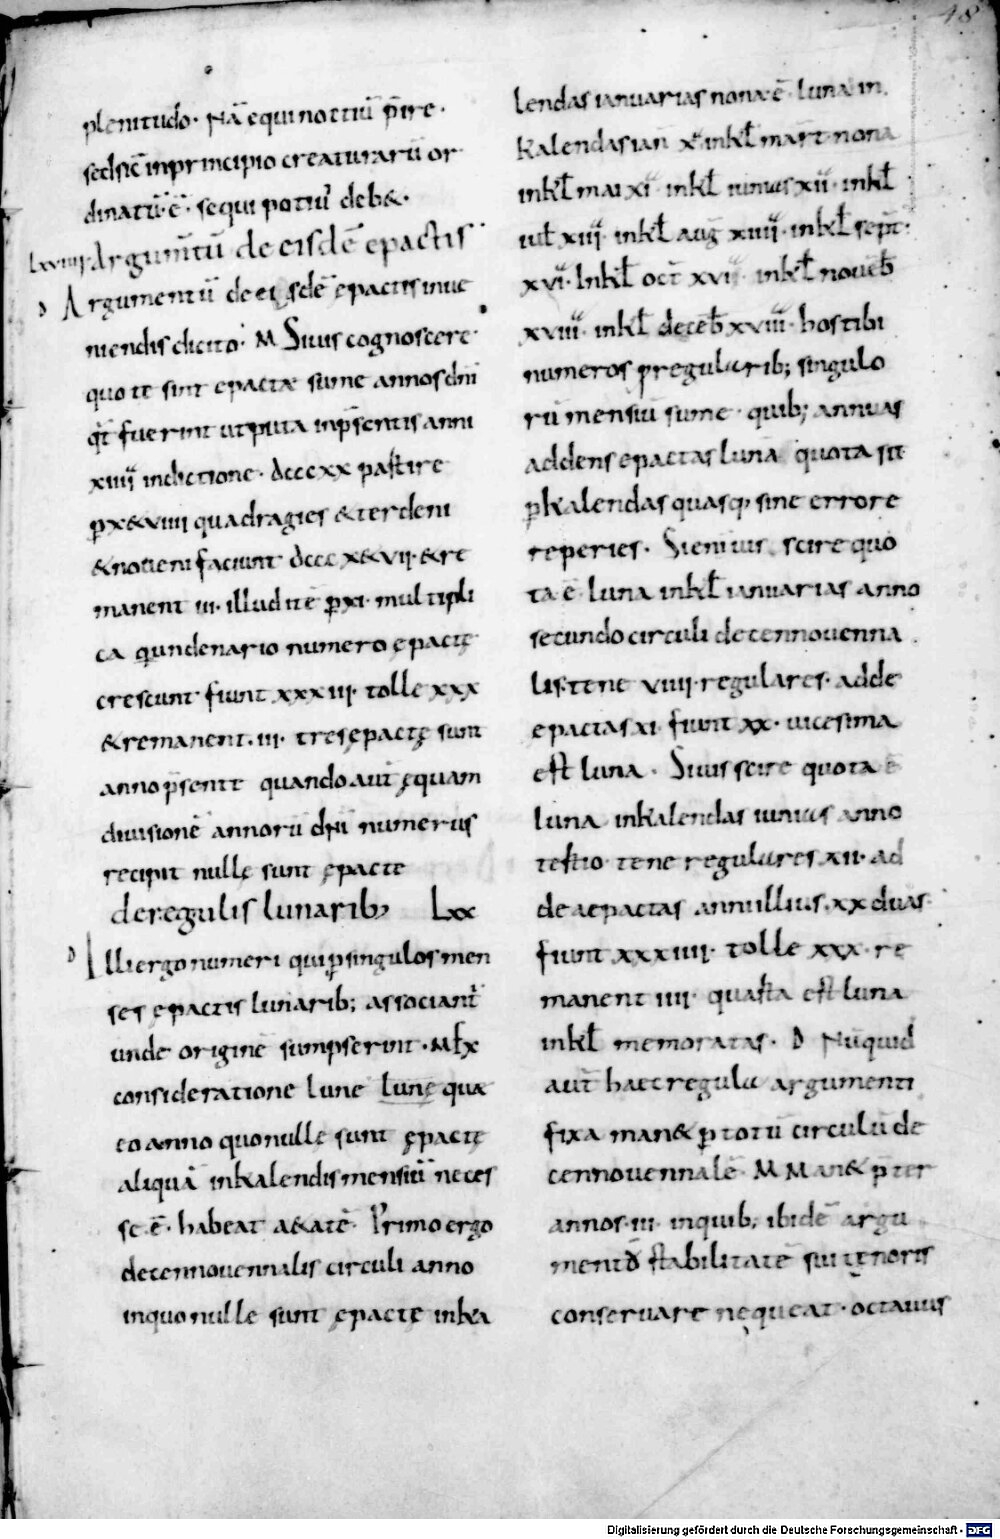 48
plenitudo· Nā equinoctiū p̄ire·
sed sic̄ inprincipio creaturarū or
dinatū· ē· sequi potiu᷒ deb&·
Lxviiii· Argum̄tū de eisdē epactis
D Argumentū de eisdē ępactis inue
niendis dicito· M Siuis cognoscere·
quote sint epactæ sume annos dn̄i
qt̄ fuerint utputa inp̄sentis anni
xiiii indictione· dcccxx partire
p̱ x&viiii quadragies & terdeni
& nouieni faciunt dccc x&vii· & re
manent iii· illud itē p̱ xi· multipli
ca quindenario numero ępactę
crescunt fiunt xxxiii· tolle xxx
& remanent· iii· tres ępactę sunt
anno p̄sente quando aut̄ ęquam
diuisionē annorū dn̄i numerus
recipit nullę sunt ępacte
de regulis lunarib; Lxx
D Illi ergo numeri qui p̱ singulos men
ses ępactis lunarib; associant᷒
unde originē sumpserint· M Ex
consideratione lune lunę qua
eo anno quo nullę sunt ępactę
aliquā inkalendis mensiū neces
se ē· habeat aetatē· Primo ergo
decennouennalis circuli anno
inquo nulle sunt ępactę inka
lendas ianuarias nona ē· luna in
kalendas ian̄ x· inkł mart̄ nona
inkł mai xi· inkł iunias xii· inkł
iuł xiii· inkł aug̅ xiiii· inkł sept̄·
xvi· Inkł oct̄ xvi inkł nouēb̄
xviii· inkł decēb̄ xviii· hos tibi
numeros p̱ regularib; singulo
rū mensiū sume· quib; annuas
addens epactas luna quota sit
p̱ kalendas quasq; sine errore
reperies· Sienim uis scire quo
ta ē luna inkł ianuarias anno
secundo circuli decennouenna
lis· tene viiii· regulares· adde
epactas xi fiunt xx· uicesima
est luna· Siuis scire quota ē
luna inkalendas iunias anno
tertio tene regulares xii· ad
de aepactas anni illius· xx duas·
fiunt xxxiiii· tolle xxx· re
manent iiii· quarta est luna
inkł memoratas· D Nūquid
aut̄ haec regula argumenti
fixa man& p̱ totū circulū de
cennouennalē· M Man& p̄ter
annos· iii· inquib; ibidē argu
mentū stabilitatē sui tęnoris
conseruare nequeat· octauus
Digitalisierung gefördert durch die Deutsche Forschungsgemeinschaft - DFG